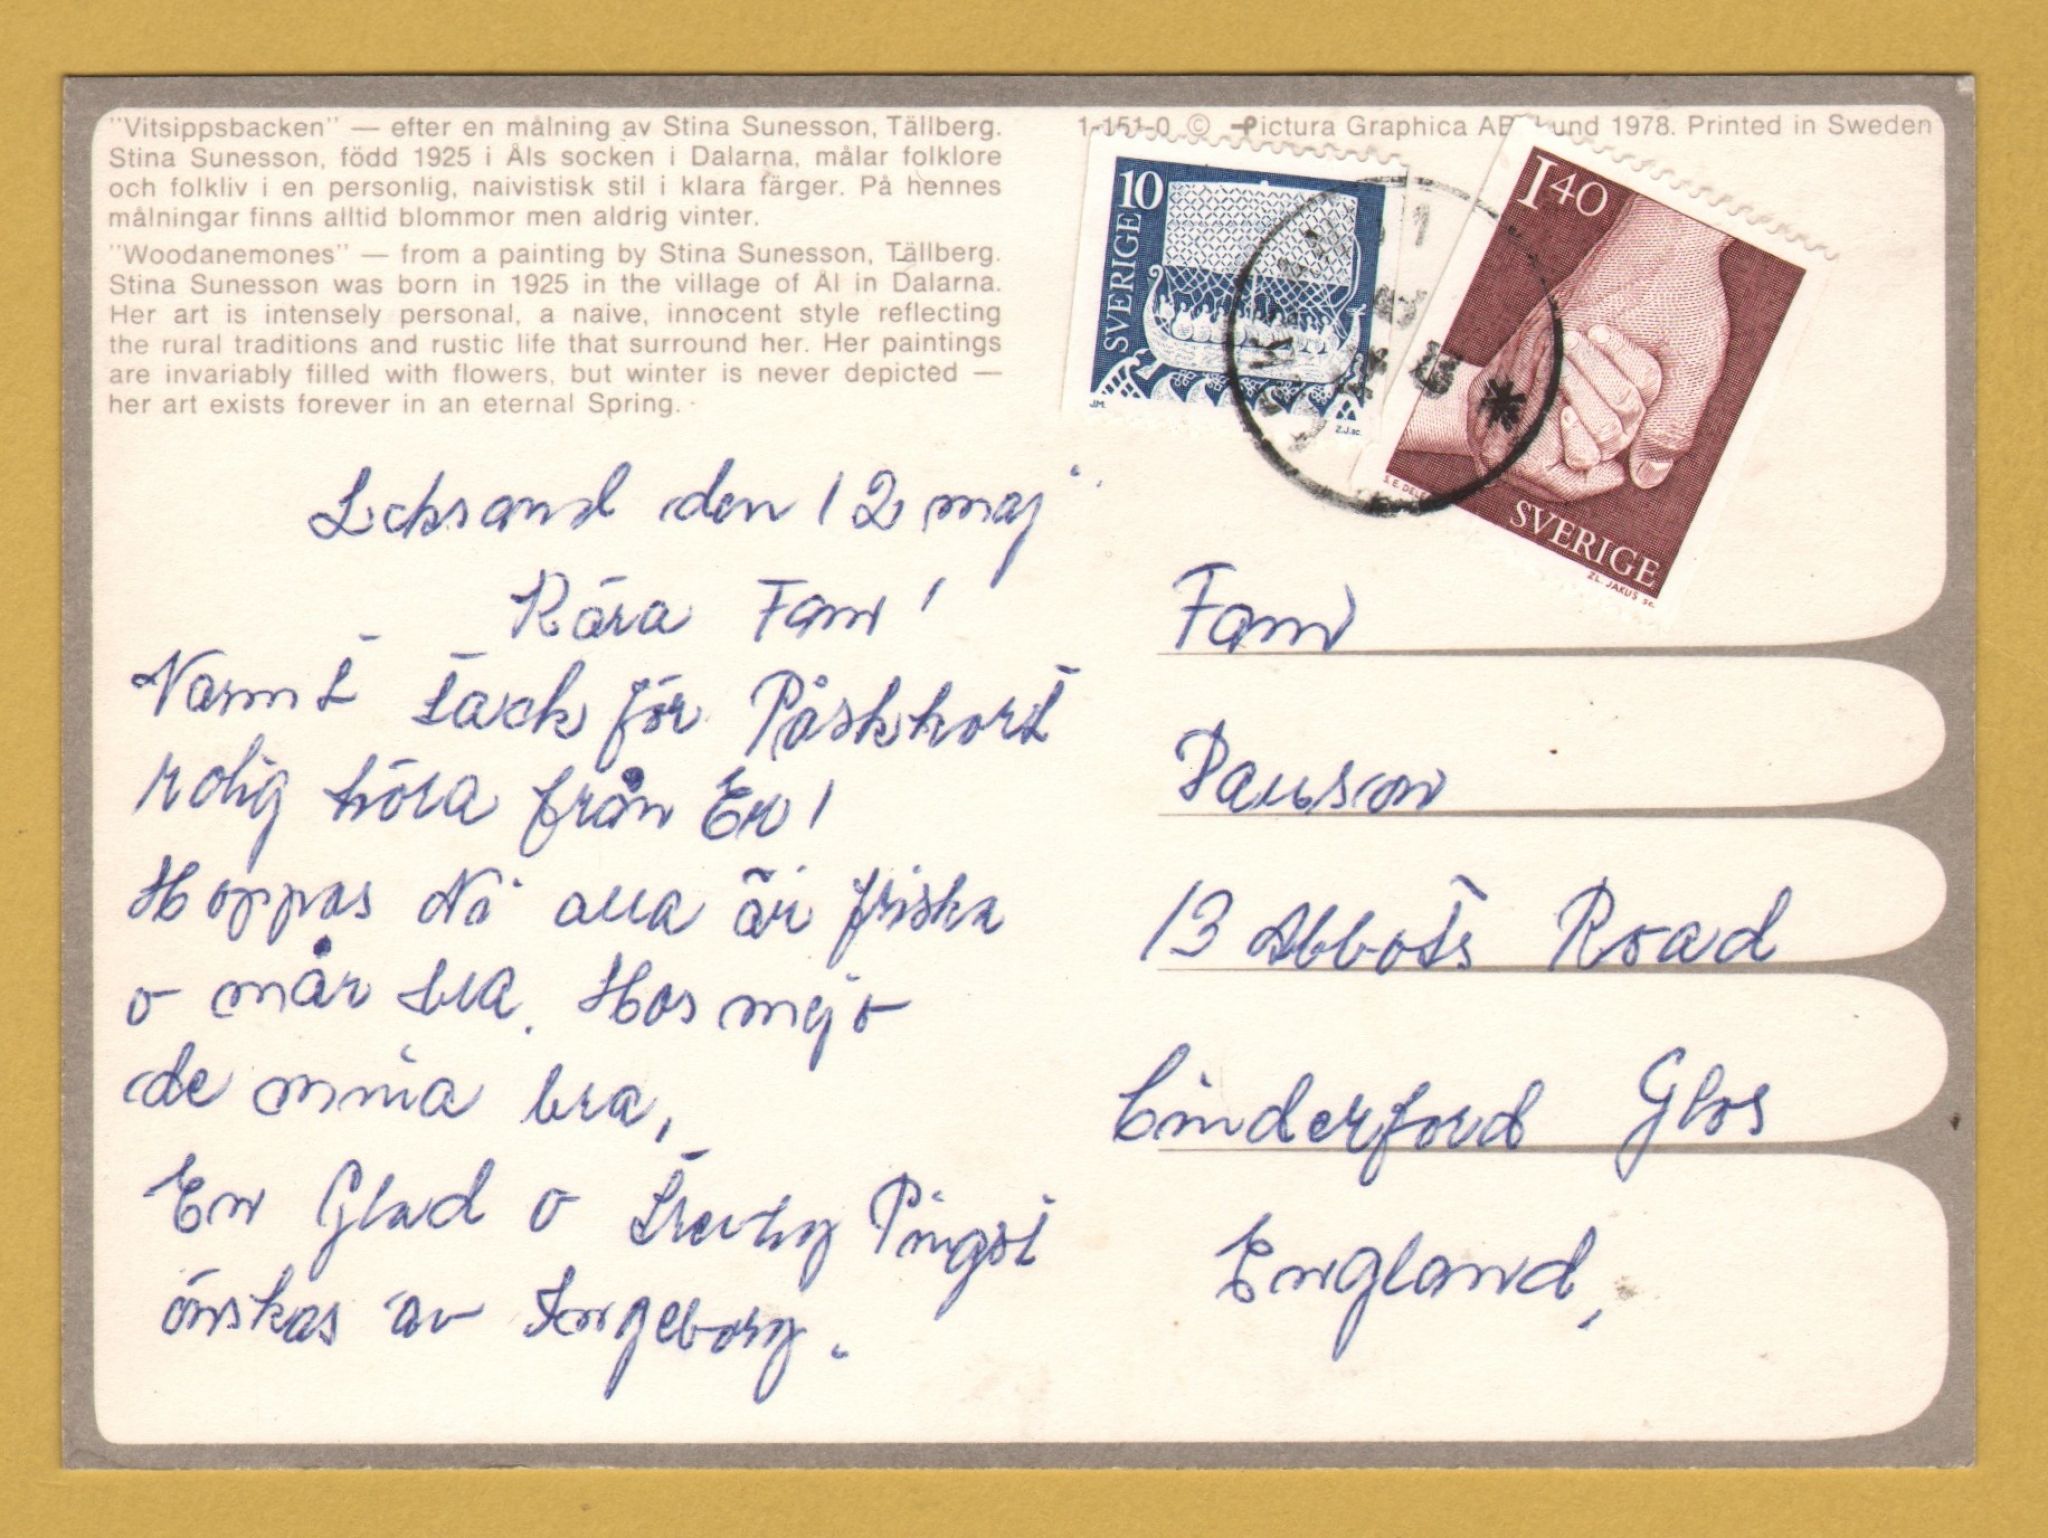 "Vitsippsbacken" — efter en målning av Stina Sunesson, Tällberg.
Stina Sunesson, född 1925 i Åls socken i Dalarna, målar folklore
och folkliv i en personlig, naivistisk stil i klara färger. På hennes
målningar finns alltid blommor men aldrig vinter.
"Woodanemones" — from a painting by Stina Sunesson, Tällberg.
Stina Sunesson was born in 1925 in the village of Ål in Dalarna.
Her art is intensely personal, a naive, innocent style reflecting
the rural traditions and rustic life that surround her. Her paintings
are invariably filled with flowers, but winter is never depicted —
her art exists forever in an eternal Spring.
Leksand den 12 maj
Kära Fam!
Varmt tack för Påskkort
rolig höra från Er!
Hoppas Ni alla är friska
o mår bra. Hos mej o
de mina bra,
En Glad o Trevlig Pingst
önskas av Ingeborg.
1-151-0 © Pictura Graphica AB Lund 1978. Printed in Sweden
10
SVERIGE
JM.
Z.J.sc.
1 40
SVERIGE
ZL. JAKUŠ sc.
Fam
13 Abbots Road
Cinderford Glos
England,